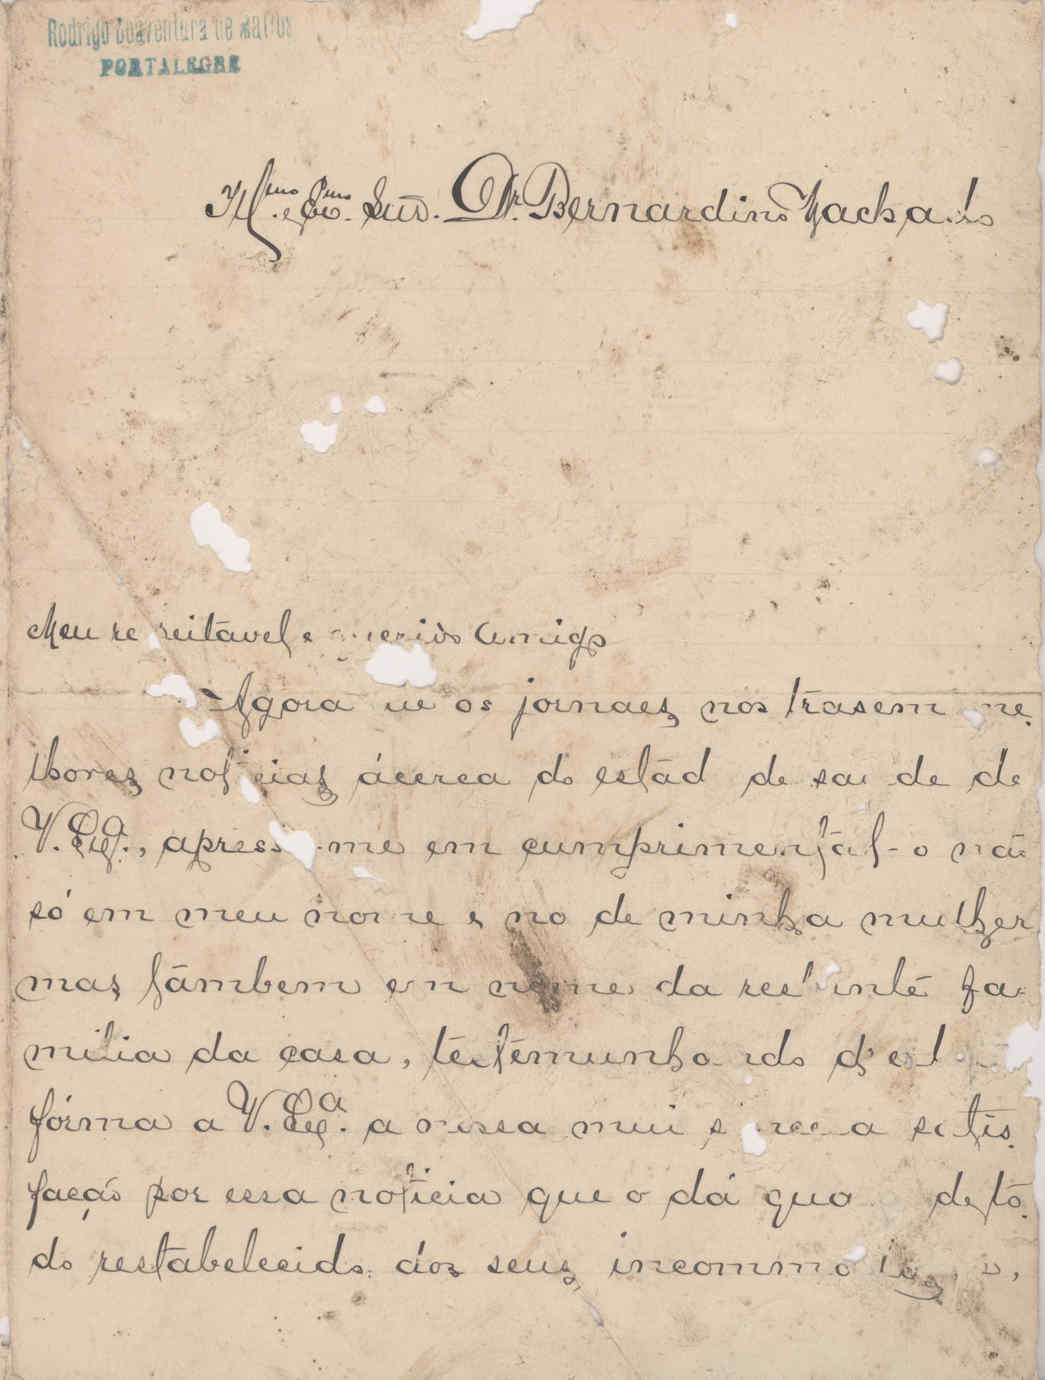 Rodrigo Boaventura de Mattos
PORTALEGRE
Ill.mo e Ex.mo Snr. Dr. Bernardino Machado
Meu respeitavel e querido amigo
Agora que os jornaes nos trasem me-
lhores noticias ácerca do estado de saude de
V. Ex.ª, apresso-me em cumprimental-o não
só em meu nome e no de minha mulher
mas tambem em nome da restante fa-
milia da casa, testemunhando d'esta
fórma a V. Ex.ª a nossa mui sincera satis-
fação por essa noticia que o dá quasi de to-
do restabelecido dos seus incommodos,